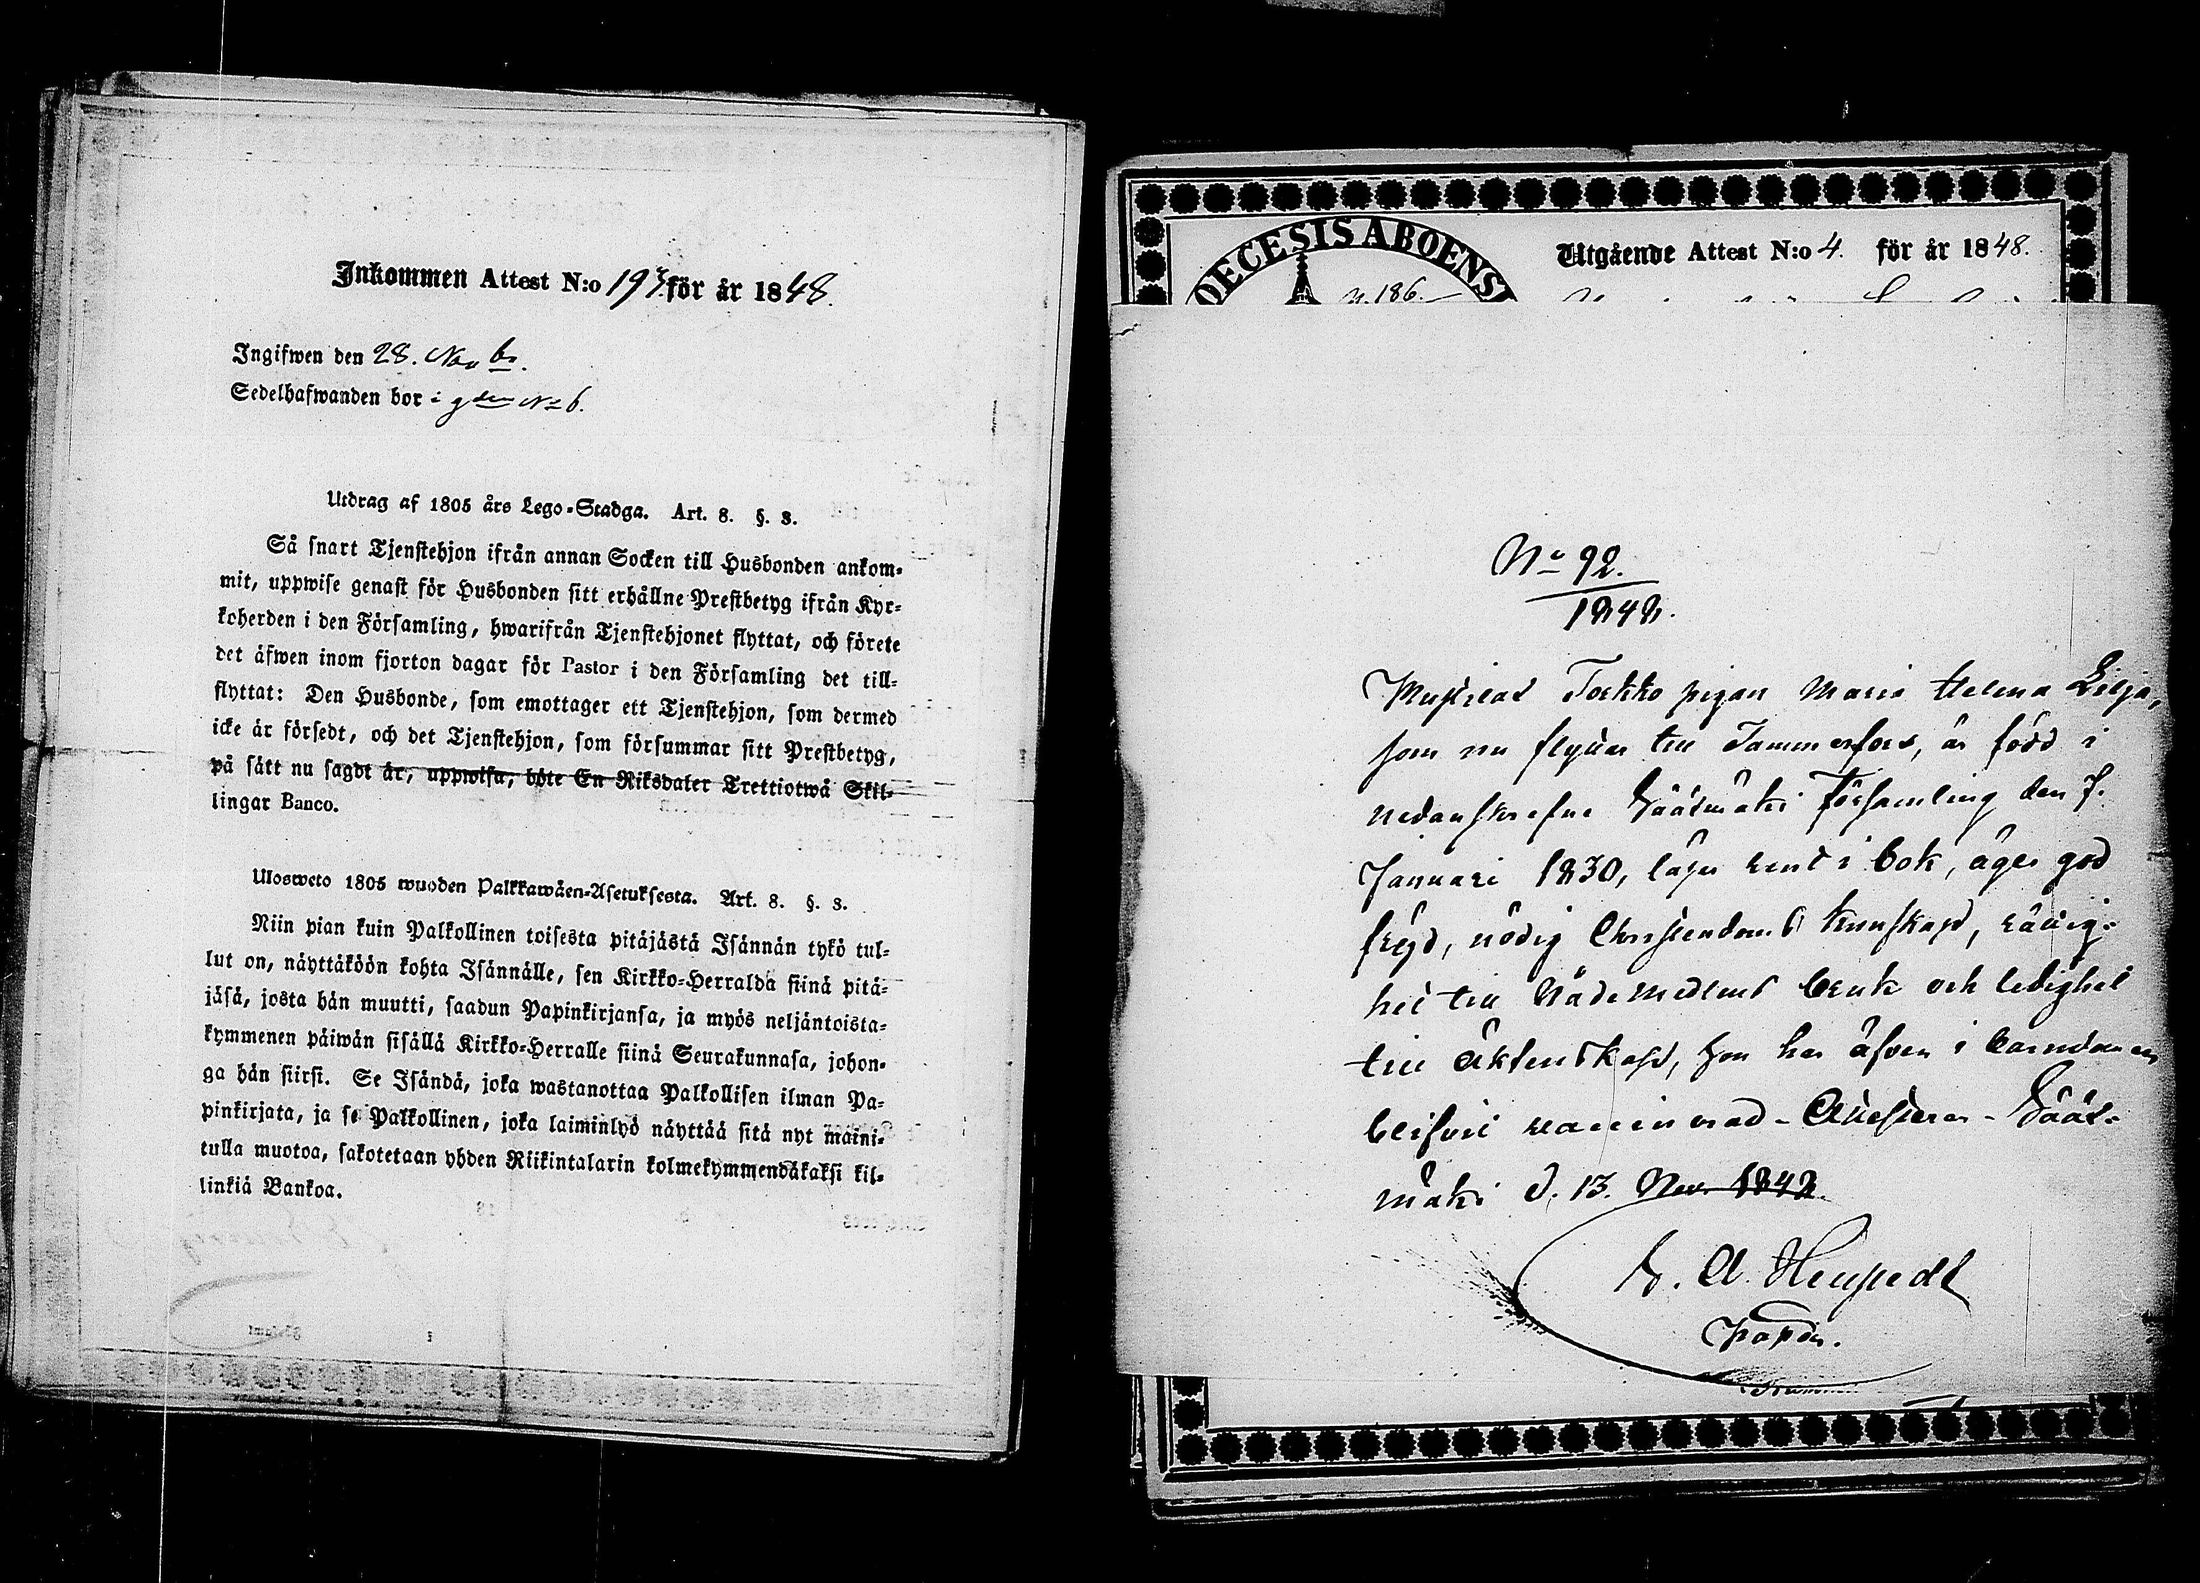 Inkommen Attest N:o 193 för år 1848.
Ingifwen den 28. Novbr.
Sedelhafwanden bor i gden No 6.
Utdrag af 1805 års Lego-Stadga. Art. 8. §. 3.
Så snart Tjenstehjon ifrån annan Socken till Husbonden ankom-
mit, uppwise genast för Husbonden sitt erhållne Prestbetyg ifrån Kyr-
koherden i den Församling, hwarifrån Tjenstehjonet flyttat, och förete
det äfwen inom fjorton dagar för Pastor i den Församling det till-
flyttat: Den Husbonde, som emottager ett Tjenstehjon, som dermed
icke är försedt, och det Tjenstehjon, som försummar sitt Prestbetyg,
på sätt nu sagdt är, uppwisa, böte En Riksdaler Trettiotwå Skil-
lingar Banco.
Ulosweto 1805 wuoden Palkkawäen-Asetuksesta. Art. 8. §. 3.
Niin pian kuin Palkollinen toisesta pitäjästä Isännän tykö tul-
lut on, näyttäköön kohta Isännälle, sen Kirkko-Herralda siinä pitä-
jäsä, josta hän muutti, saadun Papinkirjansa, ja myös neljäntoista-
kymmenen päiwän sisällä Kirkko-Herralle siinä Seurakunnasa, johon-
ga hän siirsi. Se Isändä, joka wastanottaa Palkollisen ilman Pa-
pinkirjata, ja se Palkollinen, joka laiminlyö näyttää sitä nyt maini-
tulla muotoa, sakotetaan yhden Riikintalarin kolmekymmendäkaksi kil-
linkiä Bankoa.
OECESIS ABOENS
N. 186.
Utgående Attest N:o 4. för år 1848.
No 92.
1848.
Torkko pigan Maria Helena Lilja,
som nu flyttar till Tammerfors, är född i
nedanskrefne Sääxmäki Församling den 7.
Januari 1830, läser rent i bok, äger god
frejd, nödig Christendoms kunskap, rättig-
het till Nådemedlens bruk och ledighet
till Äktenskap, hon har äfven i barndomen
blifvit vaccinerad - Attesterar - Sääx-
mäki d. 13. Nov. 1848.